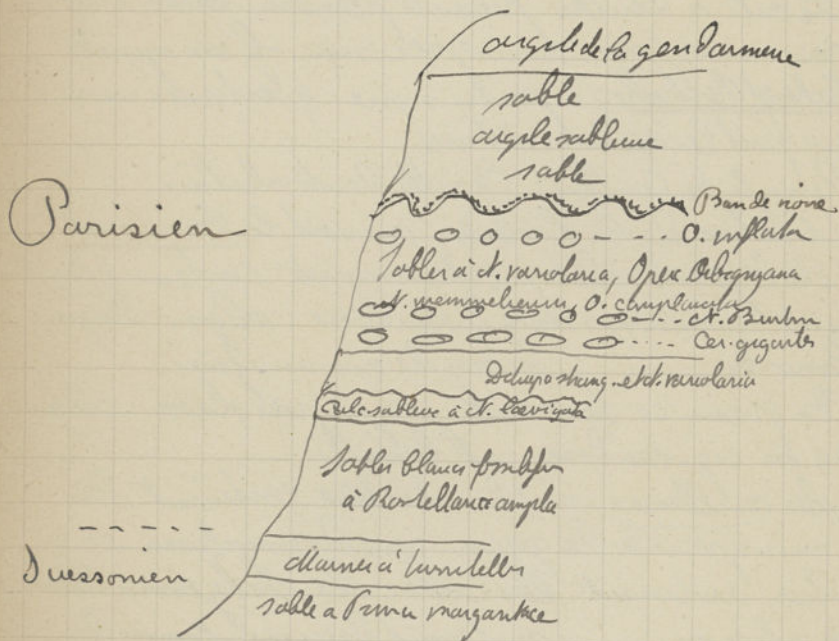 argile de la gendarmerie
sable
argile sableuse
sable
Parisien
Bande noire
O. inflata
Sables à N. variolaria, Operc. Orbignyana
N. wemmelensis, O. complanata
N. Burtin
Cer. gigantes
et N. variolaria
Calc. sableux à N. laevigata
Sables blancs fossilifères
à Rostellaria ampla
Suessonien
Marnes à turritelles
sable à Pinna margaritacea